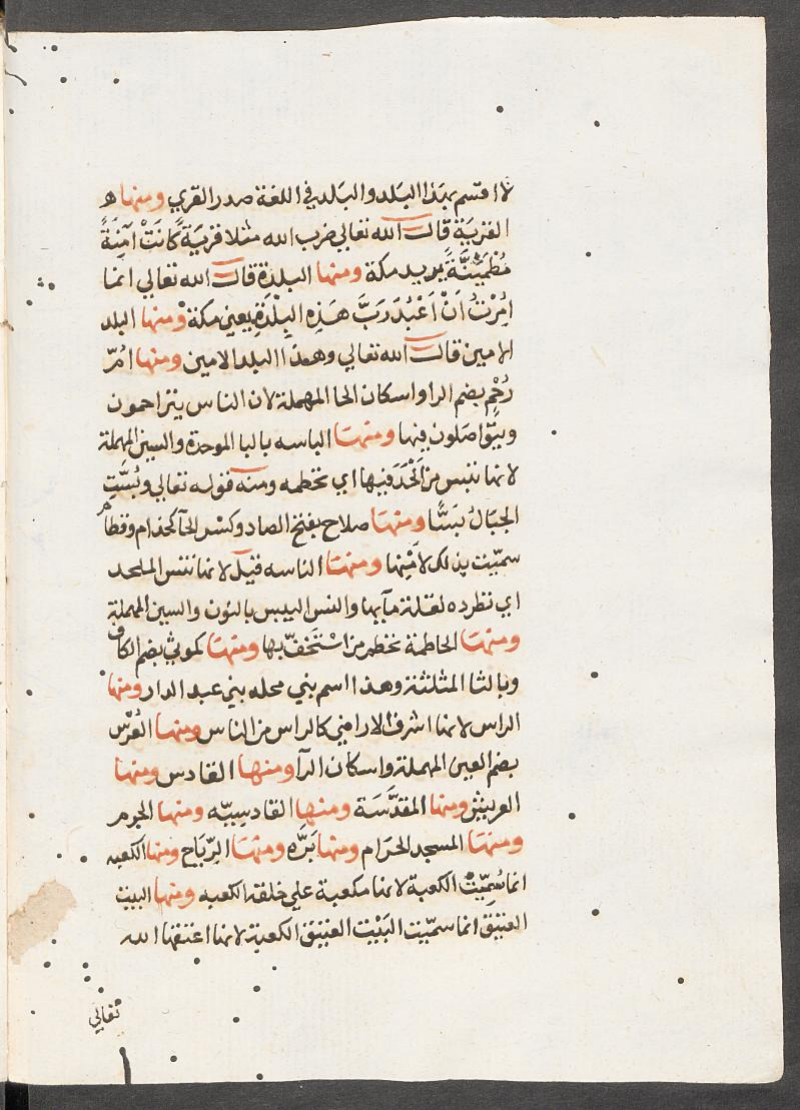 لا اقسم بهذا البلد والبلد في اللغة صدر القري ومنها ه
القرية قال الله تعالي ضرب الله مثلا قرية كانت آمنة
مطمئنة يريد مكة ومنها البلدة قال الله تعالي انما
امرت ان اعبد رب هذه البلدة يعني مكة ومنها البلد
الامين قال الله تعالي وهذا البلد الامين ومنها امّ
رحم بضم الرا واسكان الحا المهملة لان الناس يتراحمون
ويتواصلون فيها ومنها الباسه بالبا الموحدة والسين المهملة
لانها تبس من الحد فيها اي تحطمه ومنه قوله تعالي وبُسَّتِ
الجبالُ بَسًّا ومنها صلاح بفتح الصاد وكسر الحآ كحذام وقطام
سميت بذلك لامنها ومنها الناسه قيل لانها تنس الملحد
اي تطرده لقلة مآيها والنس اليبس بالنون والسين المهملة
ومنها الحاطمة تحطم من استخفّ بها ومنها كوثي بضم الكاف
وبالثا المثلثة وهذا اسم بني محله بني عبد الدار ومنها
الراس لانها اشرف الاراضي كالراس من الناس ومنها العُرْس
بضم العين المهملة واسكان الرآ ومنها القادس ومنها
العريش ومنها المقدَّسَة ومنها القادسيّه ومنها الحرم
ومنها المسجد الحرام ومنها بَرَّه ومنها الرّتاج ومنها الكعبه
انما سُمِّيت الكعبة لانها مكعبة علي خلقة الكعبه ومنها البيت
العتيق انما سميت البيت العتيق الكعبة لانها اعتقها الله
تعالي